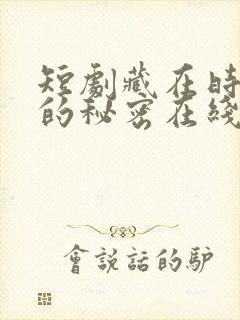 短劇藏在時
的秘密在綫
會說話的驴